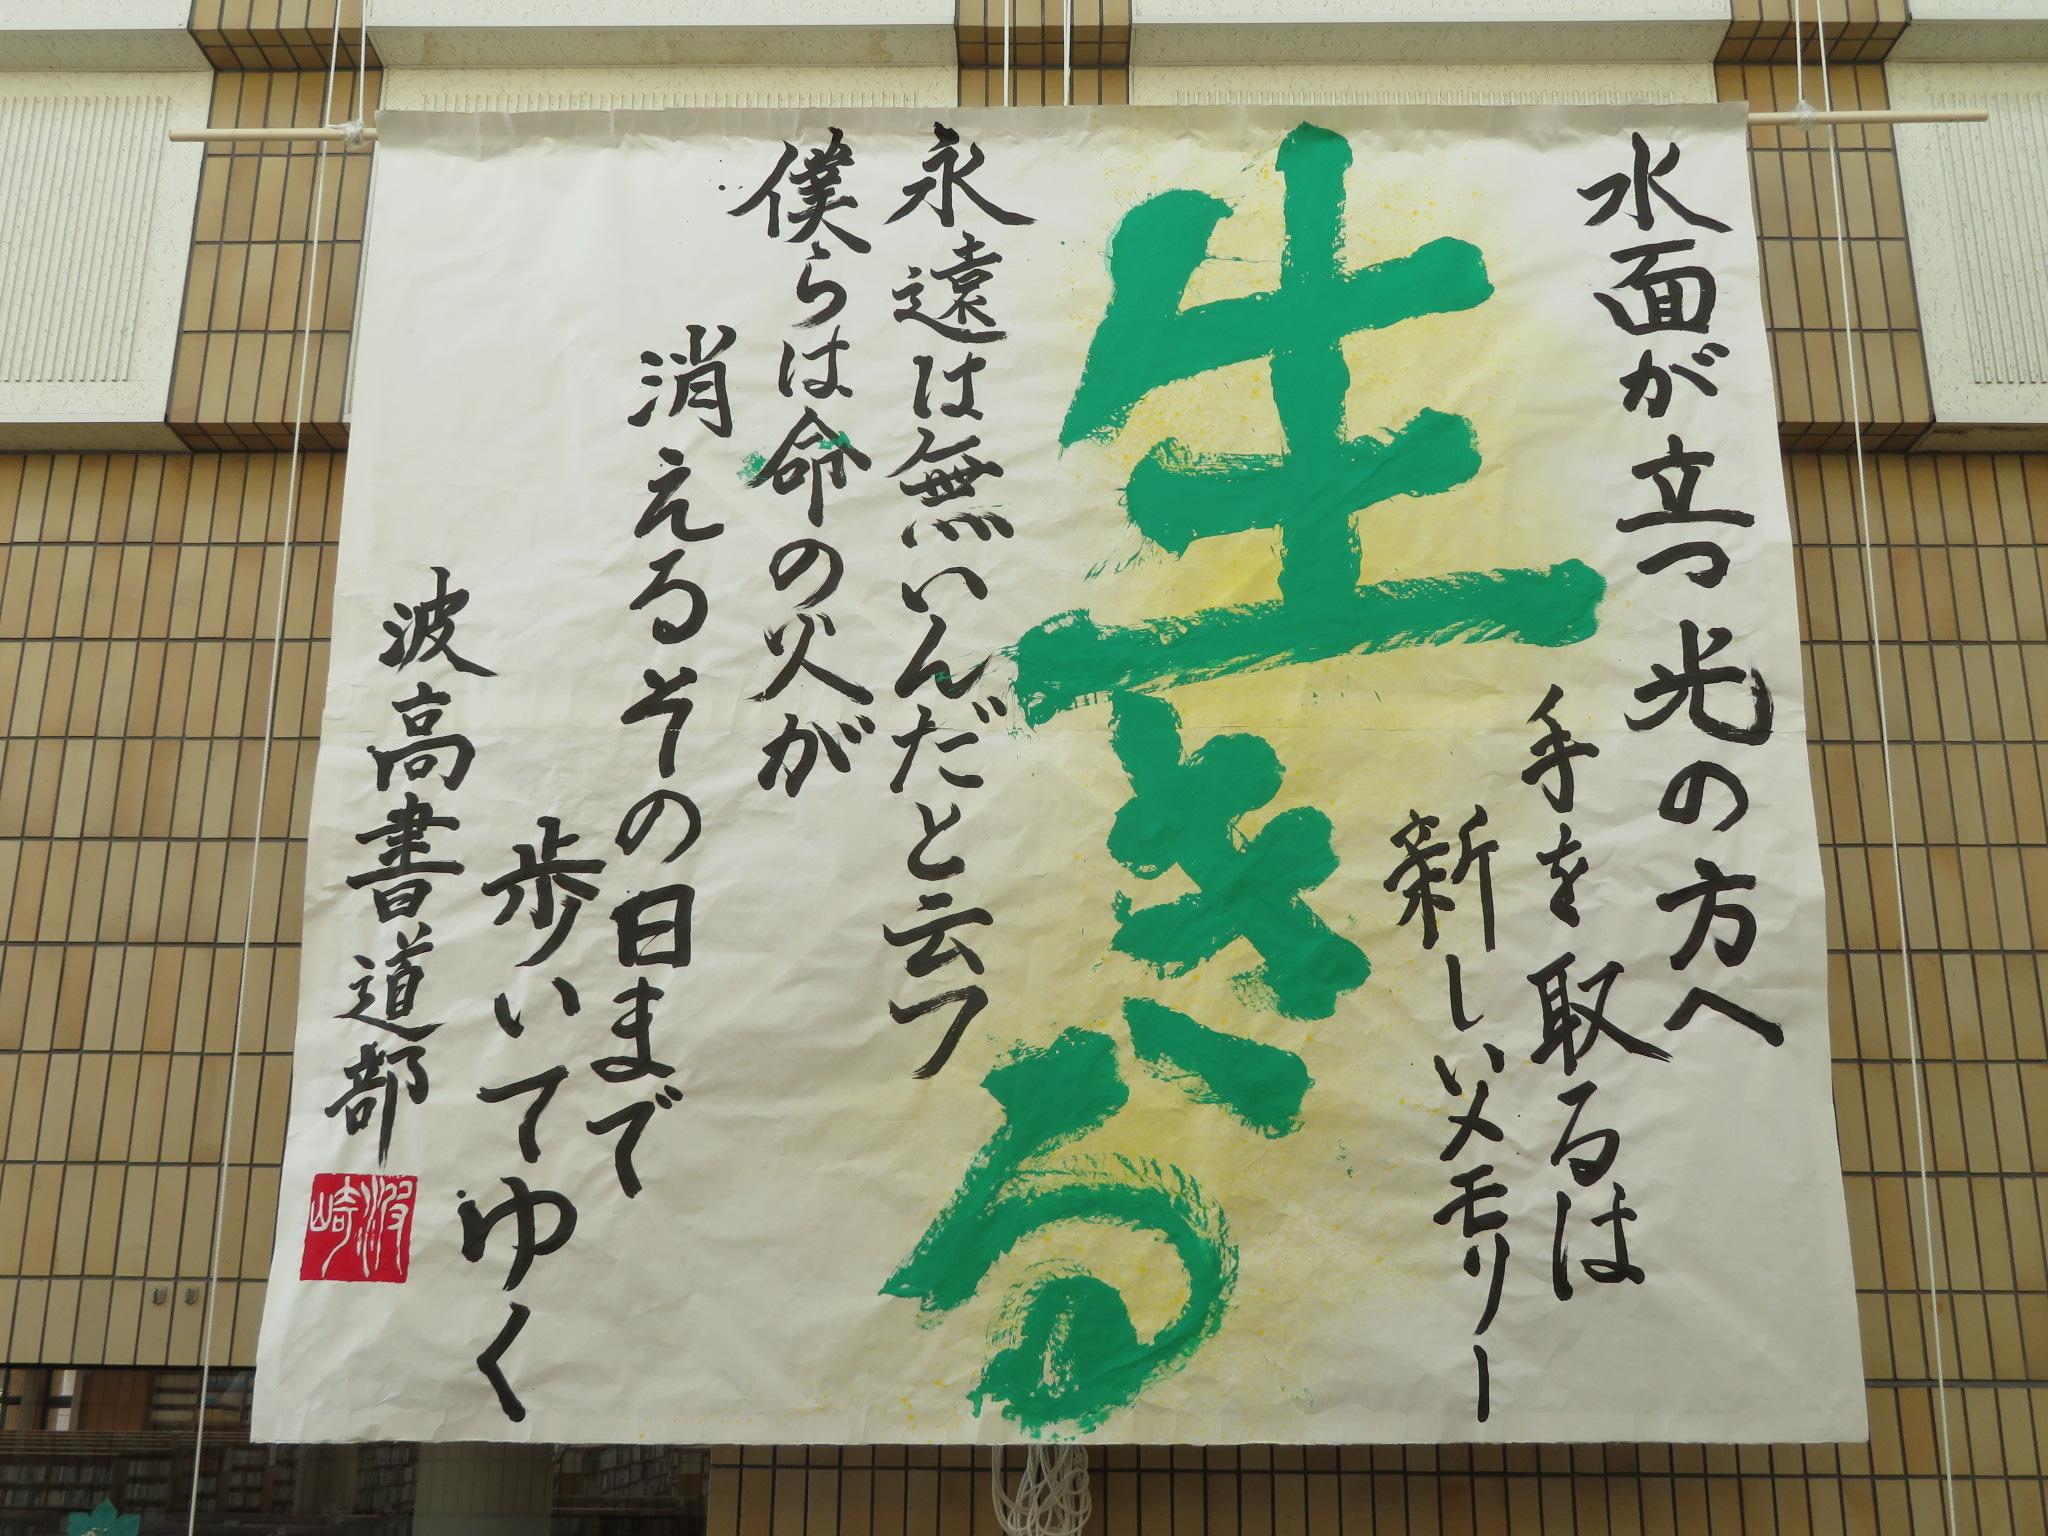 水面が立つ光の方へ
手を取るは
新しいメモリー
生きる
永遠は無いんだと云フ
僕らは命の火が
消えるその日まで
歩いてゆく
波高書道部
波崎